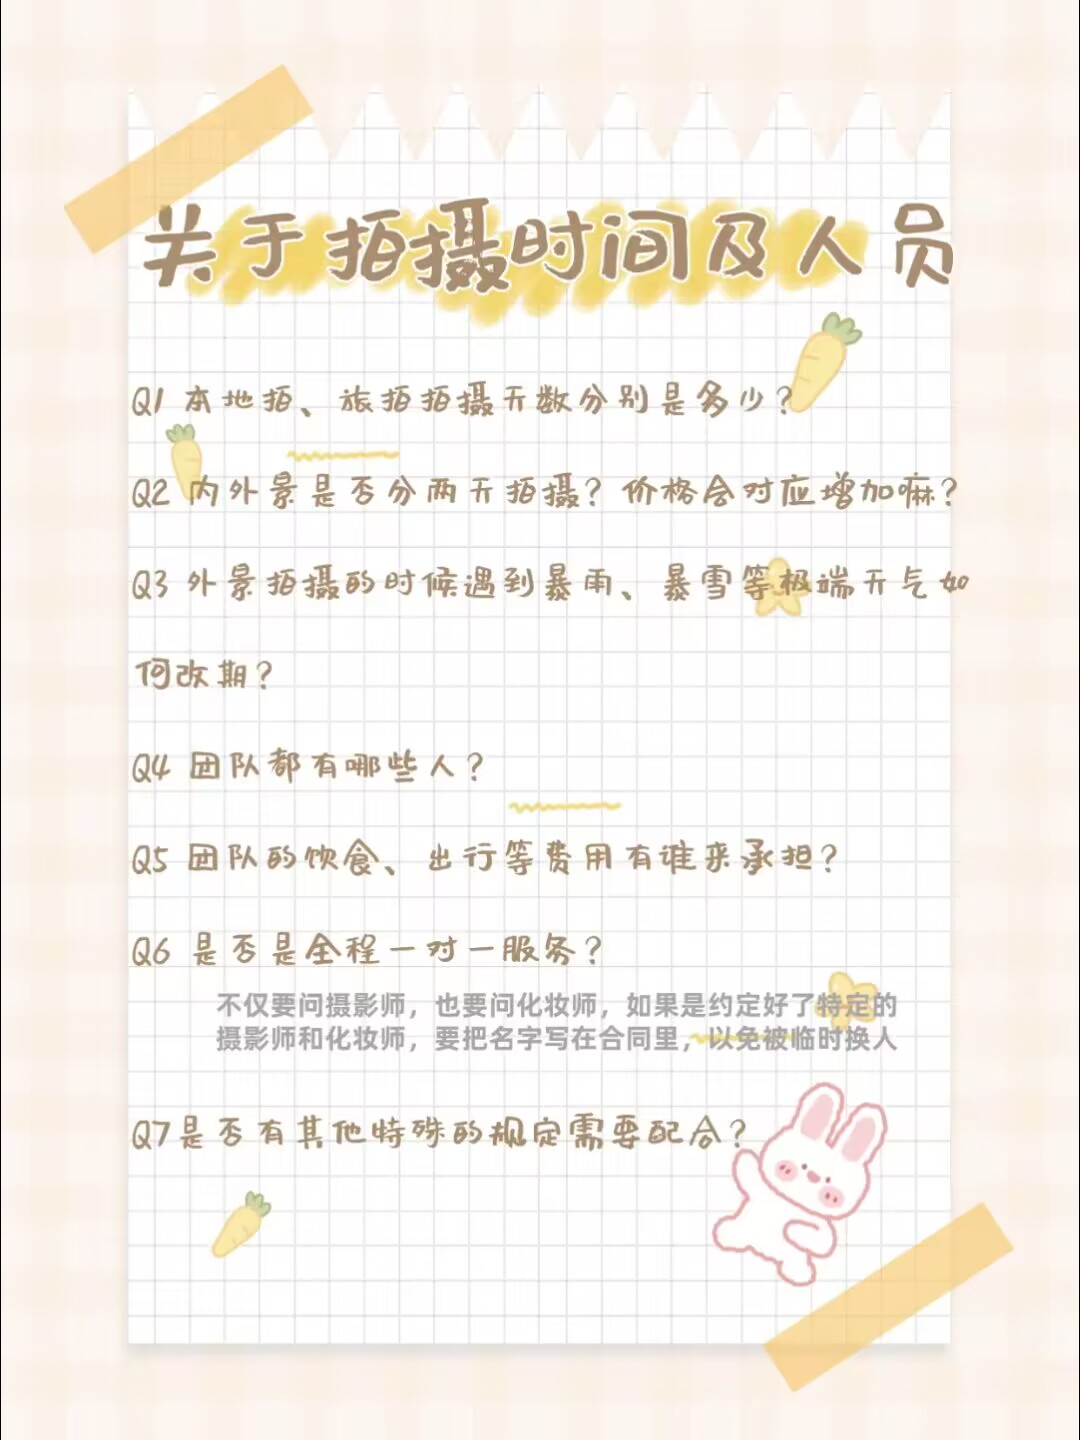 关于拍摄时间及人员
Q1 本地拍、旅拍拍摄天数分别是多少?
Q2 内外景是否分两天拍摄? 价格会对应增加嘛?
Q3 外景拍摄的时候遇到暴雨、暴雪等极端天气如
何改期?
Q4 团队都有哪些人?
Q5 团队的饮食、出行等费用有谁来承担?
Q6 是否是全程一对一服务?
不仅要问摄影师，也要问化妆师，如果是约定好了特定的
摄影师和化妆师，要把名字写在合同里，以免被临时换人
Q7是否有其他特殊的规定需要配合?